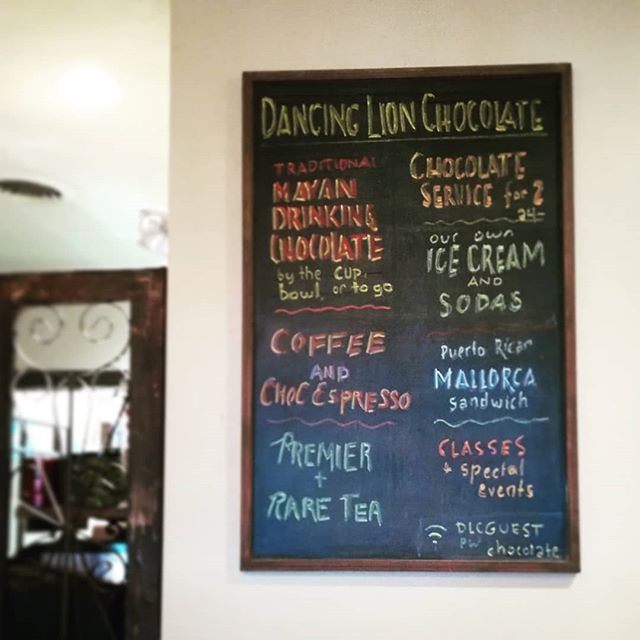 DANCING LION CHOCOLATE
TRADITIONAL
MAYAN
DRINKING
CHOCOLATE
by the cup,
bowl, or to go
COFFEE
AND
CHOC ESPRESSO
PREMIER
+
RARE TEA
CHOCOLATE
SERVICE for 2
24-
our own
ICE CREAM
AND
SODAS
Puerto Rican
MALLORCA
sandwich
CLASSES
+ special
events
DLCGUEST
PW chocolate